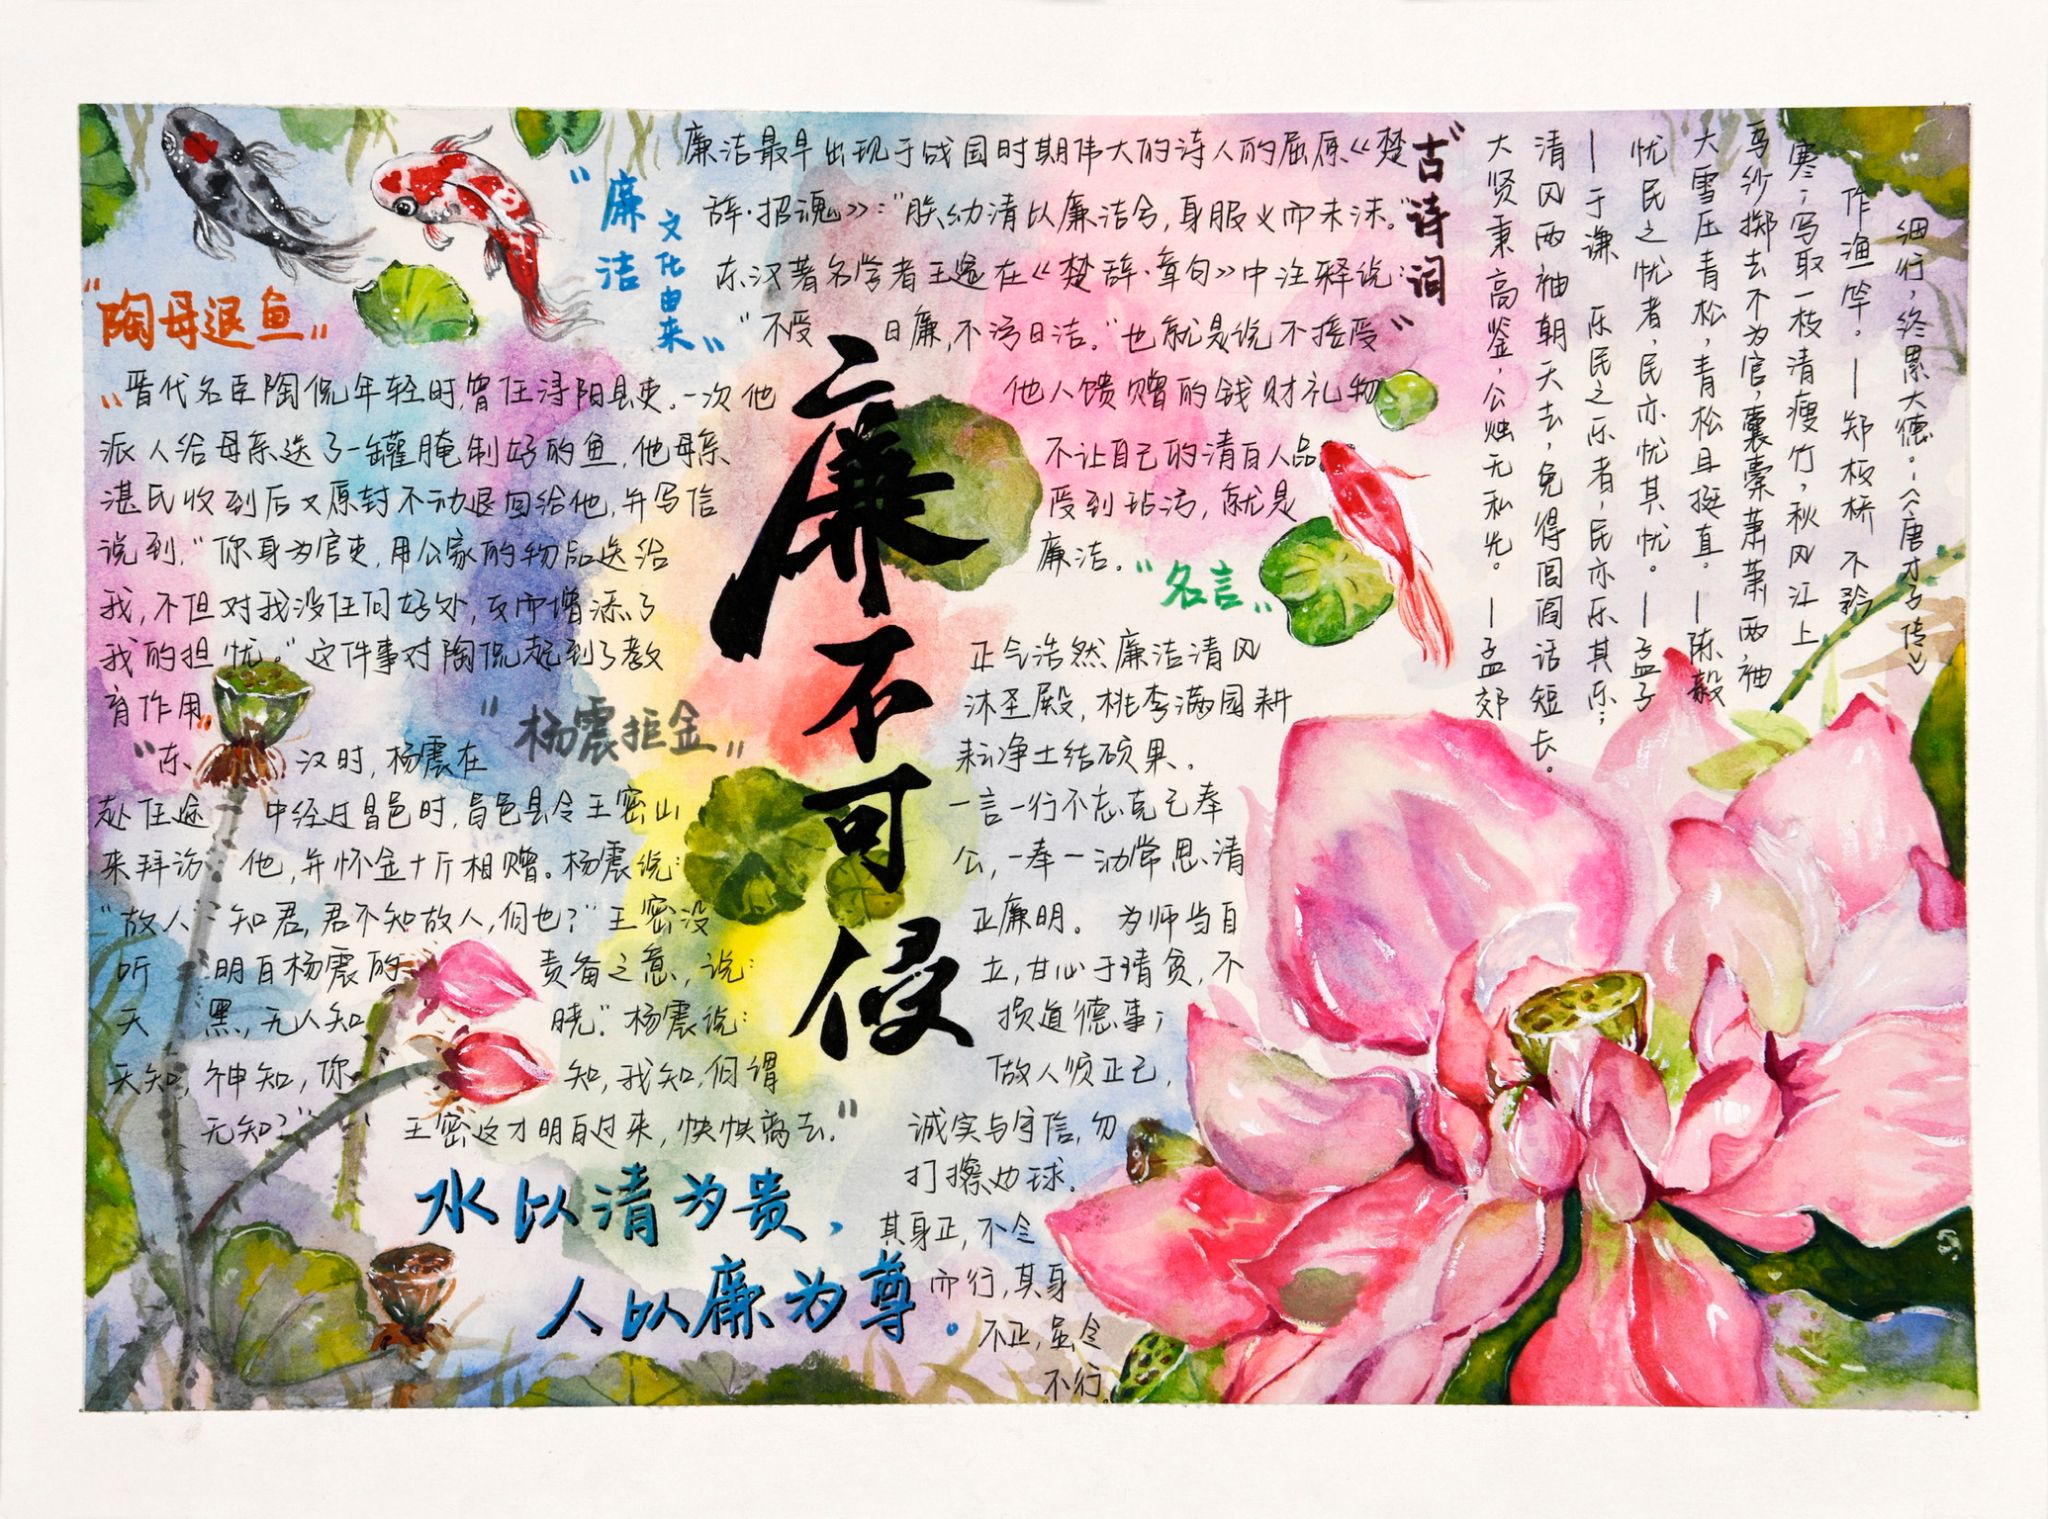 廉不可侵
"陶母退鱼"
"晋代名臣陶侃年轻时,曾任浔阳县吏。一次他
派人给母亲送了一罐腌制好的鱼,他母亲
湛氏收到后又原封不动退回给他,并写信
说到,"你身为官吏,用公家的物品送给
我,不但对我没任何好处,反而增添了
我的担忧。"这件事对陶侃起到了教
育作用"
"杨震拒金"
"东汉时,杨震在
赴任途中经过昌邑时,昌邑县令王密山
来拜访他,并怀金十斤相赠。杨震说:
"故人知君,君不知故人,何也?"王密没
听明白杨震的责备之意,说:
天黑,无人知晓。"杨震说:
天知,神知,你知,我知,何谓
无知?"王密这才明白过来,怏怏离去。"
水以清为贵,
人以廉为尊。
"廉洁
文化由来"
廉洁最早出现于战国时期伟大的诗人的屈原《楚
辞·招魂》:"朕幼清以廉洁兮,身服义而未沫。"
东汉著名学者王逸在《楚辞·章句》中注释说:
"不受曰廉,不污曰洁。"也就是说不接受
他人馈赠的钱财礼物
不让自己的清白人品
受到玷污,就是
廉洁。
"名言"
正气浩然廉洁清风
沐圣殿,桃李满园耕
耘净土结硕果。
一言一行不忘克己奉
公,一奉一动常思清
正廉明。 为师当自
立,甘心于清贫,不
损道德事;
做人须正己,
诚实与守信,勿
打擦边球。
其身正,不令
而行,其身
不正,虽令
不行。
"古诗词"
细行,终累大德。--《唐才子传》
作渔竿。--郑板桥 不矜
寒;写取一枝清瘦竹,秋风江上
乌纱掷去不为官,囊橐萧萧两袖
大雪压青松,青松且挺直。--陈毅
忧民之忧者,民亦忧其忧。--孟子
--于谦 乐民之乐者,民亦乐其乐;
清风两袖朝天去,免得闾阎话短长。
大贤秉高鉴,公烛无私光。--孟郊